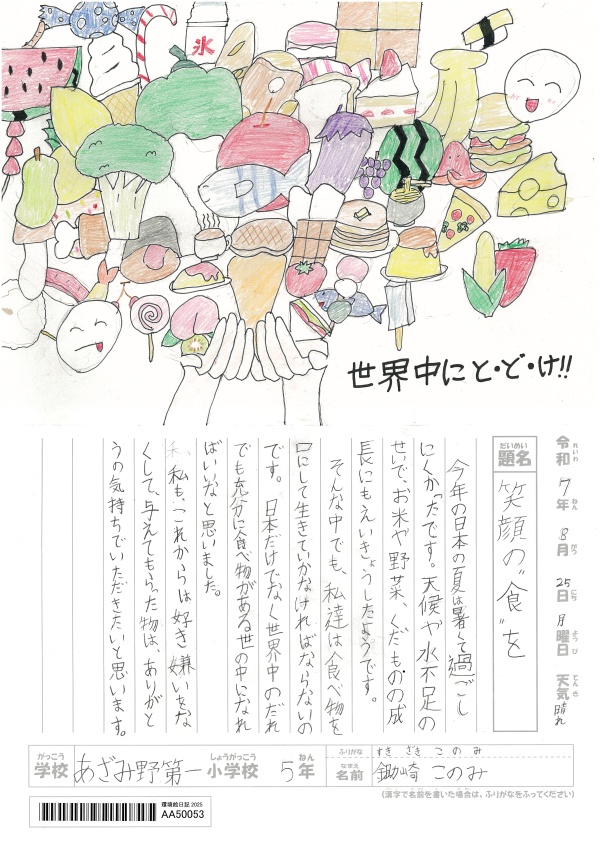 氷
世界中にと・ど・け!!
令和7年8月25日月曜日 天気晴れ
れいわ ねん がつ にち ようび てんき
だいめい
題名
笑顔の"食"を
今年の日本の夏は暑くて過ごし
にくかったです。天候や水不足の
せいで、お米や野菜、くだものの成
長にもえいきょうしたようです。
そんな中でも、私達は食べ物を
口にして生きていかなければならないの
です。日本だけでなく世界中のだれ
でも充分に食べ物がある世の中になれ
ばいいなと思いました。
私も、これからは好き嫌いをな
くして、与えてもらった物は、ありがと
うの気持ちでいただきたいと思います。
がっこう しょうがっこう ねん
学校 あざみ野第一小学校 5年
ふりがな すき ざき このみ
なまえ
名前 鋤崎 このみ
(漢字で名前を書いた場合は、ふりがなをふってください)
環境絵日記 2025
AA50053